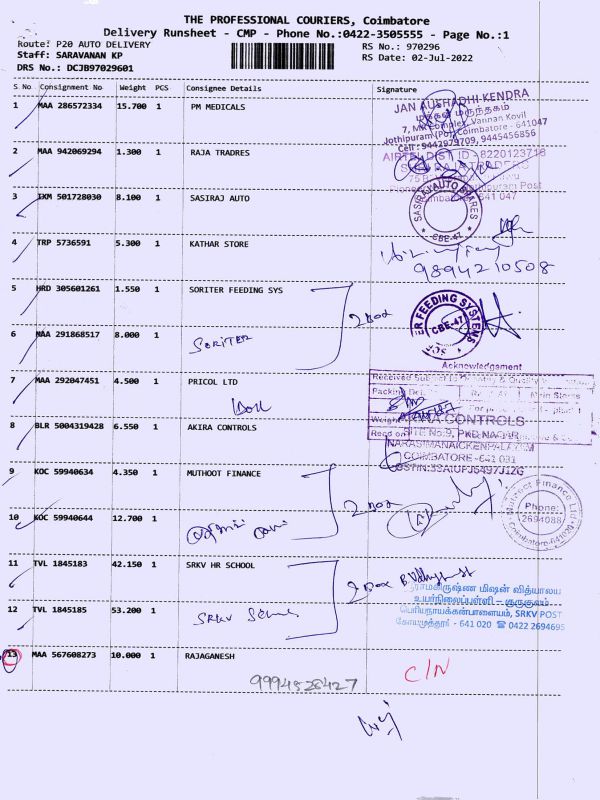 THE PROFESSIONAL COURIERS, Coimbatore
Delivery Runsheet - CMP - Phone No.:0422-3505555 - Page No.:1
Route: P20 AUTO DELIVERY
RS No.: 970296
Staff: SARAVANAN KP
RS Date: 02-Jul-2022
DRS No.: DCJB97029601
S No Consignment No Weight PCS Consignee Details Signature
1 MAA 286572334 15.700 1 PM MEDICALS
JAN AUSHADHI KENDRA
மக்கள் மருந்தகம்
7, MR Complex, Vannan Kovil
Jothipuram (Po), Coimbatore - 641047
Cell : 9442979709, 9445456856
2 MAA 942069294 1.300 1 RAJA TRADRES
AIRTEL DIST ID - 8220123718
641 047
3 IKM 501728030 8.100 1 SASIRAJ AUTO
SASIRAJ AUTO SPARES
CBE-47
4 TRP 5736591 5.300 1 KATHAR STORE
9894210508
5 HRD 305601261 1.550 1 SORITER FEEDING SYS
2 Box
ER FEEDING SYSTEMS
CBE-47
6 MAA 291868517 8.000 1
SORITER
Acknowledgement
7 MAA 292047451 4.500 1 PRICOL LTD
Main Stores
8 BLR 5004319428 6.550 1 AKIRA CONTROLS
CONTROLS
SITE No.9, PKD NAGAR
NARASIMANAICKENPALAYAM
COIMBATORE - 641 031
9 KOC 59940634 4.350 1 MUTHOOT FINANCE
2 Box
Muthoot Finance Ltd
Phone:
2694088
10 KOC 59940644 12.700 1
11 TVL 1845183 42.150 1 SRKV HR SCHOOL
2 Box
ராமகிருஷ்ண மிஷன் வித்யாலய
உயர்நிலைப்பள்ளி - குருகுலம்
பெரியநாயக்கன்பாளையம், SRKV POST
கோயமுத்தூர் - 641 020 ☎ 0422 2694695
12 TVL 1845185 53.200 1
SRKV School
13 MAA 567608273 10.000 1 RAJAGANESH
C/N
9994526427